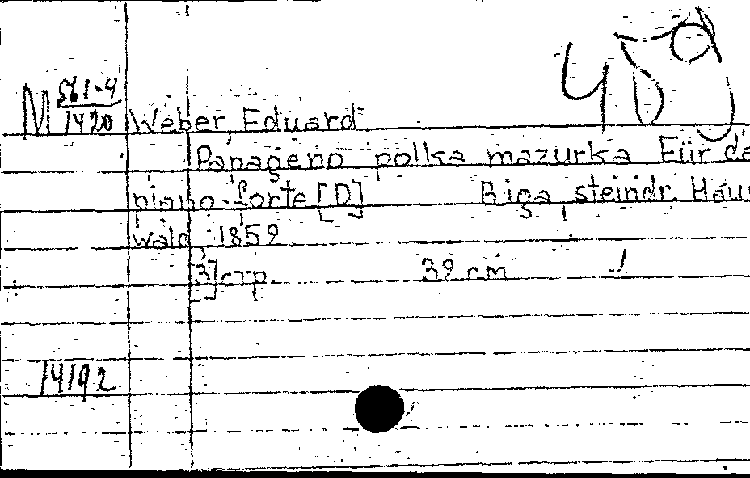 459
M 561-4
1420
Weber, Eduard
Papageno polka mazurka Für da
piano-forte [D] Riga steindr. Hau
wald 1859
[3] стр. 32 cm
14192